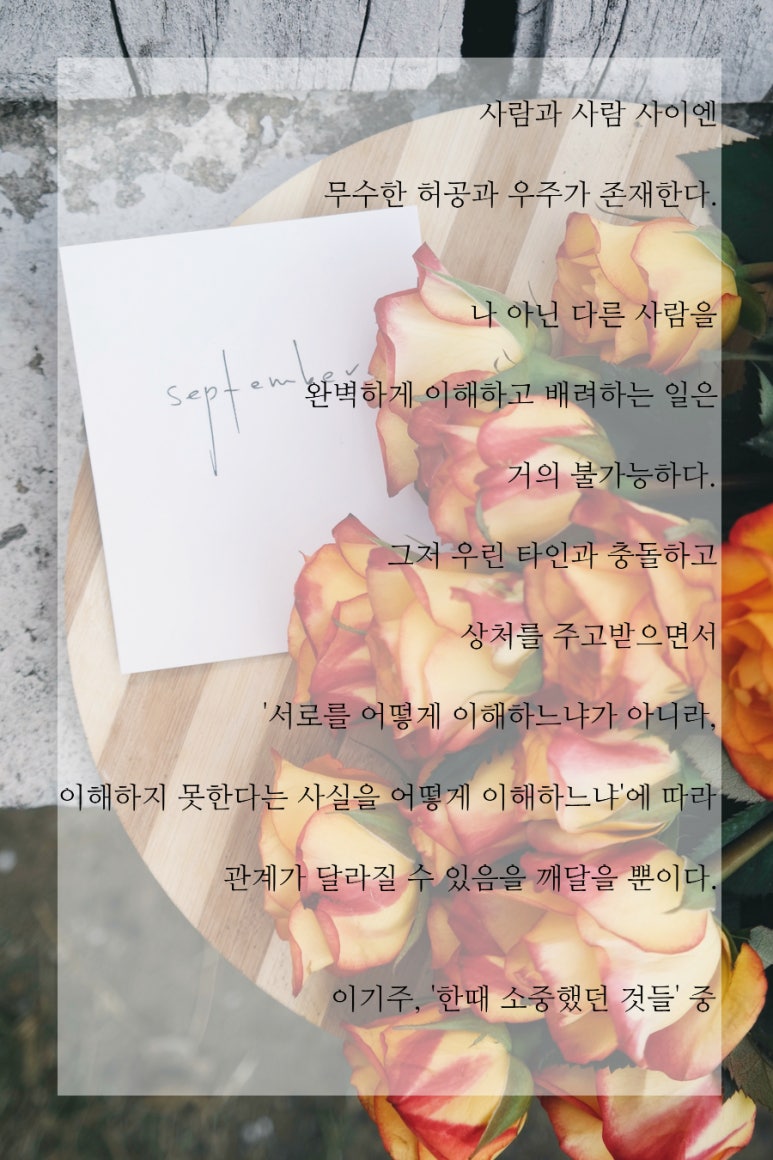 사람과 사람 사이엔
무수한 허공과 우주가 존재한다.
나 아닌 다른 사람을
september
완벽하게 이해하고 배려하는 일은
거의 불가능하다.
그저 우린 타인과 충돌하고
상처를 주고받으면서
'서로를 어떻게 이해하느냐가 아니라,
이해하지 못한다는 사실을 어떻게 이해하느냐'에 따라
관계가 달라질 수 있음을 깨달을 뿐이다.
이기주, '한때 소중했던 것들' 중